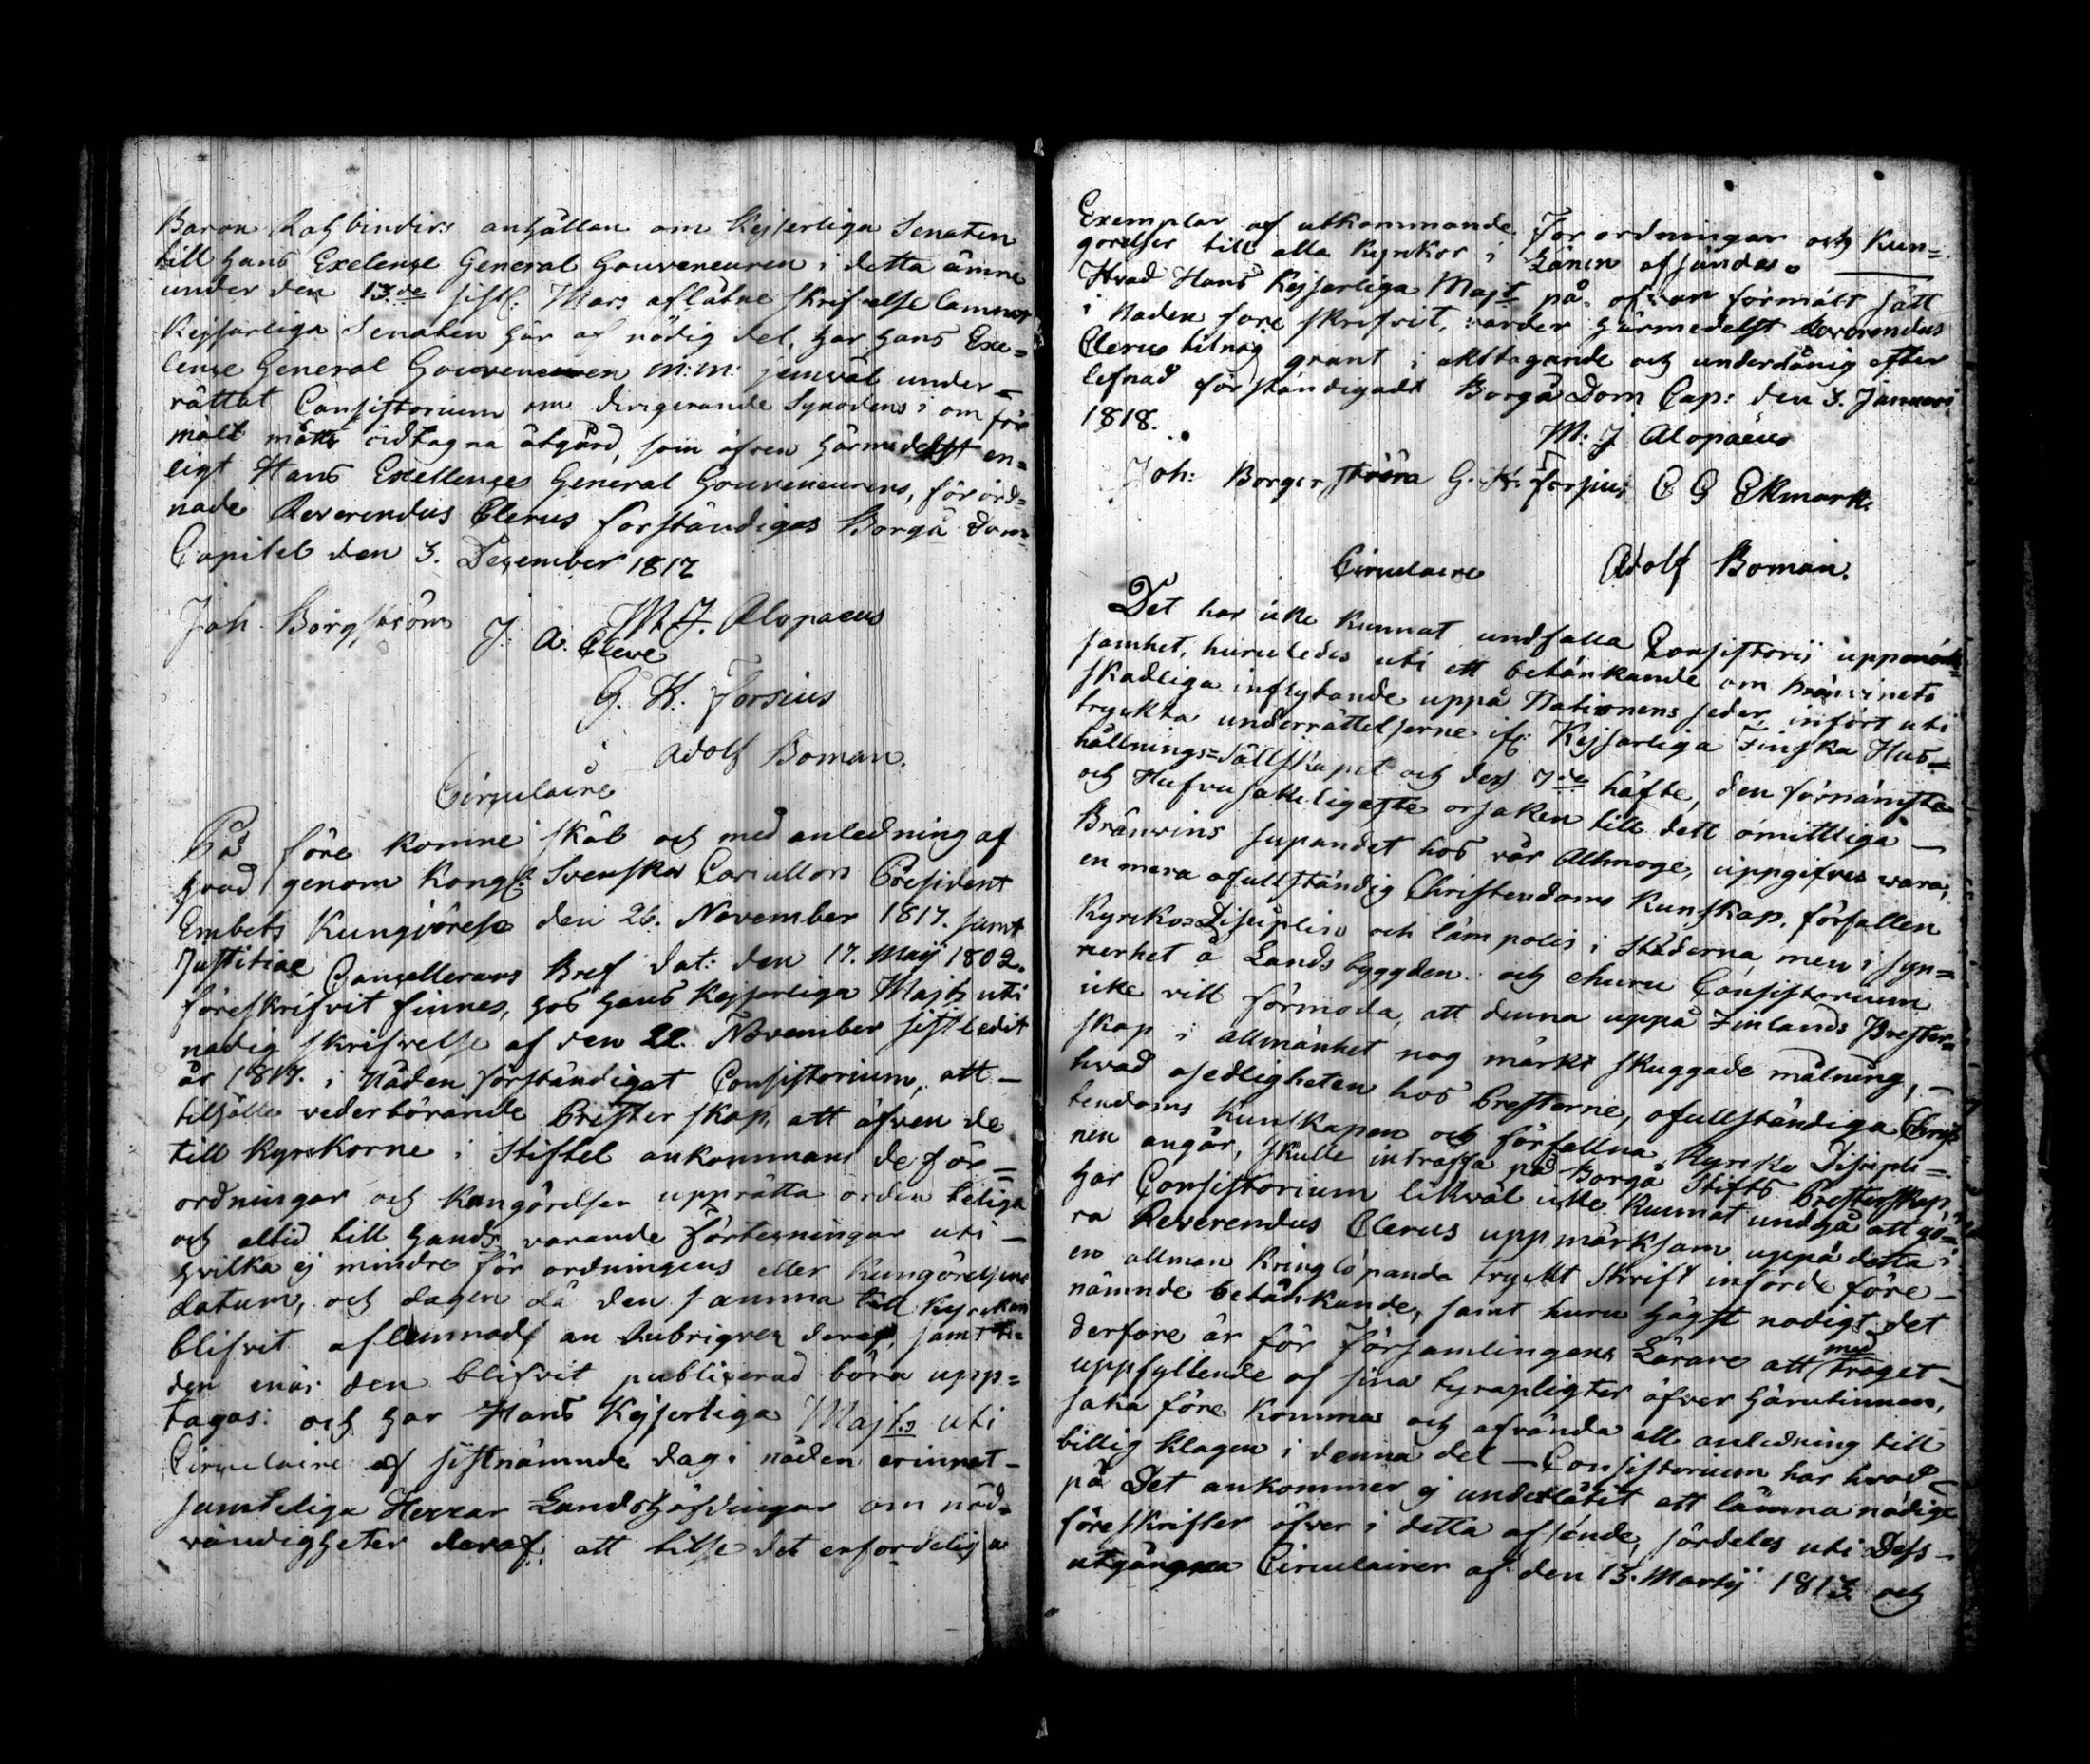 Baron Rehbinders anhållan om Kejserliga Senaten
till hans Exelense General Gouveneuren i detta ämne
under den 13de sistl. Mars aflåtne skrifvelse lemnat
Kejserliga Senaten här af nödig del, har hans Exe=
lense General Gouveneuren m:m: jemväl under=
rättat Consistorium om dirigerande Synodens i om för
mält måtto vidtagna åtgärd, som äfven härmedelst en=
ligt Hans Exellenses General Gouveneurens, förord=
nade Reverendus Clerus förständigas Borgå Dom=
Capitel den 3. December 1817
M. J. Alopaeus
Joh. Borgström J. A. Cleve
G. H. Forsius
Adolf Boman.
Circulaire
På före komne skäl och med anledning af
hvad genom Kongl. Svenska Cancellers President
Embets Kungörelse den 26. November 1817. samt
Justitiae Cancellerans Bref dat: den 17. Maij 1802.
föreskrifvit finnes, hos hans Kejserliga Majts uti
nådig skrifvelse af den 22. November sistledit
år 1817. i Nåden förständigat Consistorium, att –
tilhålla vederbörande Presterskap, att äfven de
till Kyrkorne i Stiftet ankommande för=
ordningar och Kungörelser upprätta ordenteliga
och altid till hands varande förteckningar uti –
hvilka ej mindre förordningens eller Kungörelsens
datum, och dagen då den samma till Kyrckan
blifvit aflemnad, än Rubriquen deraf, samt ti=
den när den blifvit publicerad böra upp=
tagas: och har Hans Kejserliga Majts uti
Circulaire af sistnämnde dag i nåden erinrat –
samteliga Herrar Landshöfdingar om nöd=
vändigheten deraf, att tillse det erforderliga
Exemplar af utkommande Förordningar och Kun=
görelser till alla Kyrckor i Länen afsändas. –
Hvad Hans Kejserliga Majt på ofvan förmält sätt
i Nåden föreskrifvit, varder härmedelst Reverendus
Clerus till nog grant i akttagande och underdånig efter
lefnad förständigadt Borgå Dom Cap: den 3. Januari
1818.
M: J Alopaeus
Joh: Borgerström G. H. Forsius C G Ekmark.
Adolf Boman.
Circulaire
Det har icke kunnat undfalla Consistorii uppmärk=
samhet, huruledes uti ett betänkande om Bränvinets
skadliga inflytande uppå Nationens seder, infört uti
tryckta underrättelserne ifr: Kejserliga Finska Hus=
hållnings=Sällskapet och dess 7de häfte, den förnämsta
och Hufvusakligaste orsaken till dett omåttliga –
Bränvins supandet hos vår Allmoge, uppgifves vara,
en mera ofullständig Christendoms Kunskap, förfallen
Kyrko=Disciplin och lam polis i städerna, men i syn=
nerhet å Landsbyggden. och ehuru Consistorium
icke vill förmoda, att denna uppå Finlands Prester=
skap i allmänhet nog märkt skuggade målning, –
hvad osedligheten hos Presterne, ofullständiga Chris
tendoms Kunskapen och förfallna Kyrcko Discipli=
nen angår, skulle inträffa på Borgå Stifts Presterskap,
har Consistorium likväl icke kunnat undgå att gö=
ra Reverendus Clerus uppmärksam uppå detta i
en allmän Kringlöpande tryckt Skrift införde före –
nämnde betänkande, samt huru högst nödigt det
derföre är för Församlingens Lärare att med troget –
uppfyllende af sina dyrapligter äfven härutinnan,
söka före komma och afvända all anledning till
billig klagan i denna del – Consistorium har hvad
på Det ankommer ej underlåtit att lämna nådige
föreskrifter öfver i detta afseende, särdeles uti Dess –
utgångna Circulairer af den 13. Martij 1813 och